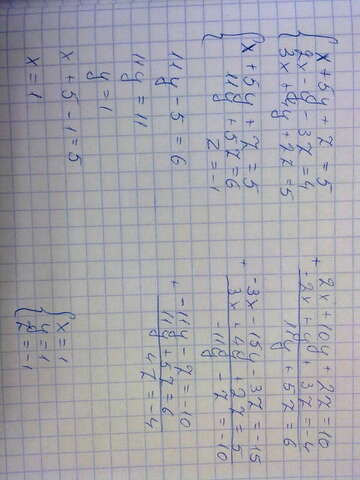 x + 5y + z = 5
2x - y - 3z = 4
3x + 4y + 2z = 5
x + 5y + z = 5
11y + 5z = 6
z = -1
11y - 5 = 6
11y = 11
y = 1
x + 5 - 1 = 5
x = 1
+ 2x + 10y + 2z = 10
-2x + y + 3z = -4
11y + 5z = 6
+ -3x - 15y - 3z = -15
3x + 4y + 2z = 5
-11y - z = -10
+ -11y - z = -10
11y + 5z = 6
4z = -4
x = 1
y = 1
z = -1